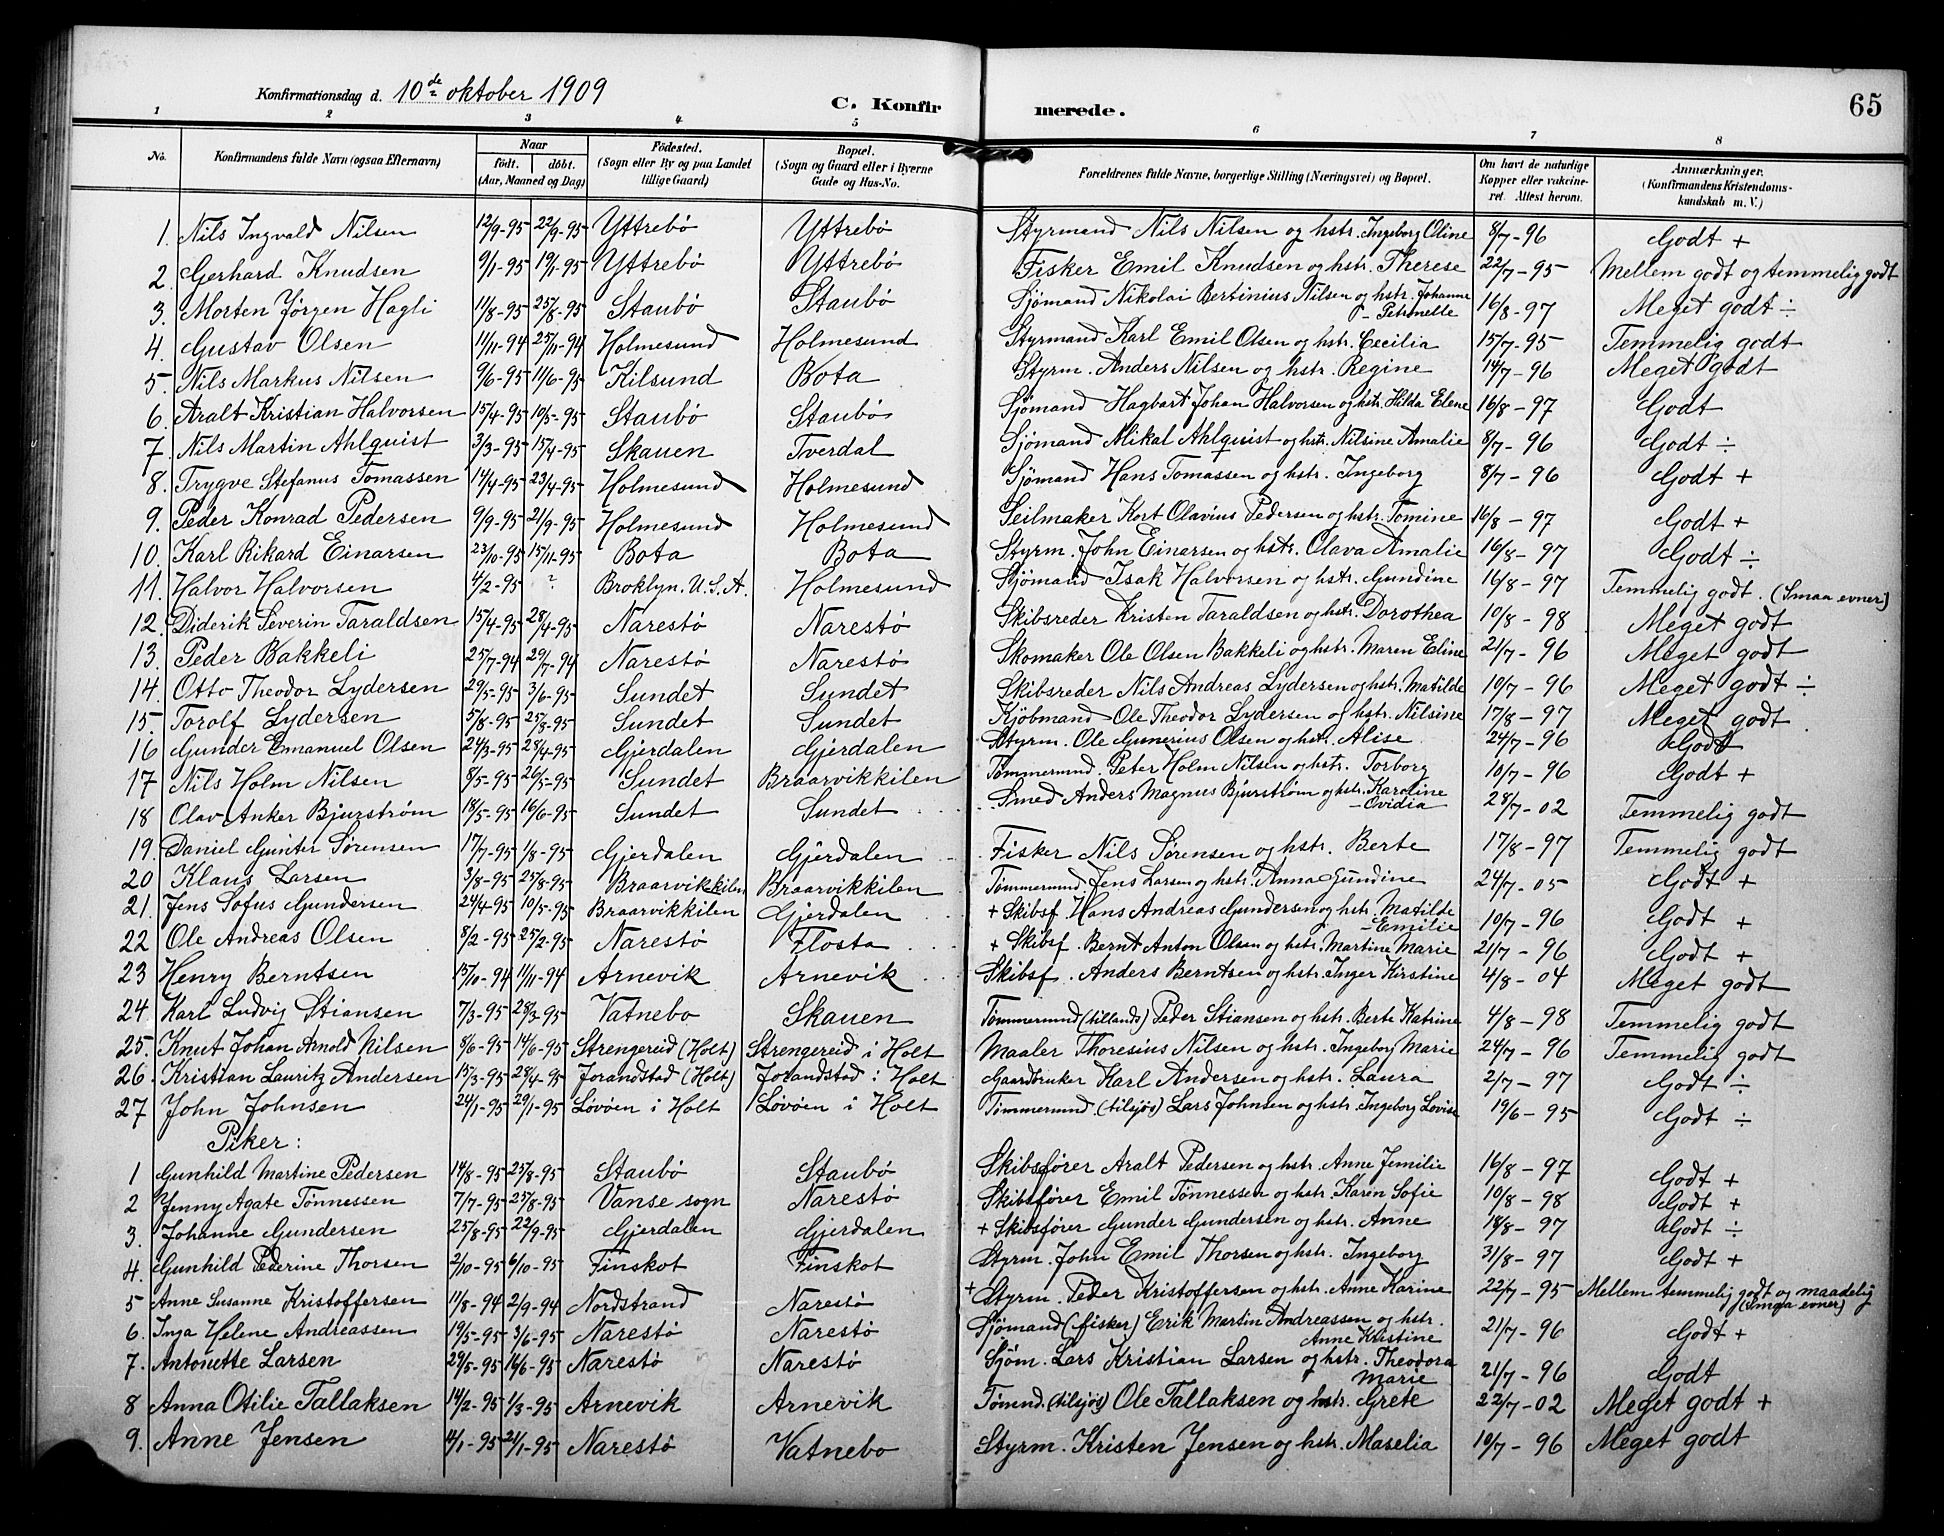 Konfirmationsdag d. 10de oktober 1909
C. Konfirmerede. 65
1 2 3 4 5 6 7 8
No. Konfirmandens fulde Navn (ogsaa Efternavn) Naar født. døbt. (Aar, Maaned og Dag) Fødested. (Sogn eller By og paa Landet tillige Gaard) Bopæl. (Sogn og Gaard eller i Byerne Gade og Hus-No. Forældrenes fulde Navne, borgerlige Stilling (Næringsvei) og Bopæl. Om havt de naturlige Kopper eller vakcineret. Attest herom. Anmærkninger. (Konfirmandens Kristendomskundskab m. V.)
1. Nils Ingvald Nilsen 12/9-95 22/9-95 Yttrebø Yttrebø Styrmand Nils Nilsen og hstr. Ingeborg Oline 8/7-96 Godt +
2. Gerhard Knudsen 9/1-95 19/1-95 Yttrebø Yttrebø Fisker Emil Knudsen og hstr. Therese 22/7-95 Mellem godt og temmelig godt
3. Morten Jørgen Hagli 11/8-95 25/8-95 Staubø Staubø Sjømand Nikolai Bertinius Nilsen og hstr. Johanne Petronelle 16/8-97 Meget godt ÷
4. Gustav Olsen 11/11-94 25/11-94 Holmesund Holmesund Styrmand Karl Emil Olsen og hstr. Cecilia 15/7-95 Temmelig godt
5. Nils Markus Nilsen 9/6-95 11/6-95 Kilsund Bota Styrm. Anders Nilsen og hstr. Regine 14/7-96 Meget godt
6. Aralt Kristian Halvorsen 15/4-95 10/5-95 Staubø Staubø Sjømand Hagbart Johan Halvorsen og hstr. Hilda Elene 16/8-97 Godt
7. Nils Martin Ahlquist 3/3-95 15/4-95 Skauen Tverdal Sjømand Mikal Ahlquist og hstr. Nilsine Amalie 8/7-96 Godt ÷
8. Trygve Stefanus Tomassen 14/4-95 23/4-95 Holmesund Holmesund Sjømand Hans Tomassen og hstr. Ingeborg 8/7-96 Godt +
9. Peder Konrad Pedersen 9/9-95 21/9-95 Holmesund Holmesund Seilmaker Kort Olavius Pedersen og hstr. Tomine 16/8-97 Godt +
10. Karl Rikard Einarsen 23/10-95 15/11-95 Bota Bota Styrm. John Einarsen og hstr. Olava Amalie 16/8-97 Godt ÷
11. Halvor Halvorsen 4/2-95 ? Broklyn. U.S.A. Holmesund Sjømand Isak Halvorsen og hstr. Gundine 16/8-97 Temmelig godt. (Smaa evner)
12. Diderik Severin Taraldsen 15/4-95 28/4-95 Narestø Narestø Skibsreder Kristen Taraldsen og hstr. Dorothea 10/8-98 Meget godt
13. Peder Bakkeli 25/7-94 29/7-94 Narestø Narestø Skomaker Ole Olsen Bakkeli og hstr. Maren Eline 21/7-96 Meget godt
14. Otto Theodor Lydersen 29/5-95 3/6-95 Sundet Sundet Skibsreder Nils Andreas Lydersen og hstr. Matilde 10/7-96 Meget godt ÷
15. Torolf Lydersen 5/8-95 25/8-95 Sundet Sundet Kjøbmand Ole Theodor Lydersen og hstr. Nilsine 17/8-97 Meget godt
16 Gunder Emanuel Olsen 24/3-95 28/4-95 Gjerdalen Gjerdalen Styrm. Ole Gunerius Olsen og hstr. Alise. 24/7-96 Godt
17 Nils Holm Nilsen 8/5-95 26/5-95 Sundet Braarvikkilen Tømmermnd. Peter Holm Nilsen og hstr. Torborg 10/7-96 Godt +
18 Olav Anker Bjurstrøm 18/5-95 16/6-95 Sundet Sundet Smed Anders Magnus Bjurstrøm og hstr. Karoline Ovidia 28/7-02 Temmelig godt
19. Daniel Gunter Sørensen 17/7-95 1/8-95 Gjerdalen Gjerdalen Fisker Nils Sørensen og hstr. Berte 17/8-97 Temmelig godt
20 Klaus Larsen 3/8-95 25/8-95 Braarvikkilen Braarvikkilen Tømmermnd. Jens Larsen og hstr. Anna Gundine 24/7-05 Godt +
21. Jens Sofus Gundersen 24/4-95 10/5-95 Braarvikkilen Gjerdalen + Skibsf. Hans Andreas Gundersen og hstr. Matilde Emilie 10/7-96 Godt +
22 Ole Andreas Olsen 8/2-95 25/2-95 Narestø Flosta + Skibsf. Bernt Anton Olsen og hstr. Martine Marie 21/7-96 Godt +
23 Henry Berntsen 15/10-94 11/11-94 Arnevik Arnevik Skibsf. Anders Berntsen og hstr. Inger Kirstine 4/8-04 Meget godt
24. Karl Ludvig Stiansen 7/3-95 28/3-95 Vatnebo Skauen Tømmermnd (tillands) Peder Stiansen og hstr. Berte Katrine 4/8-98 Temmelig godt
25. Knut Johan Arnold Nilsen 8/6-95 14/6-95 Strengereid (Holt) Strengereid i Holt Maaler Thoresius Nilsen og hstr. Ingeborg Marie 24/7-96 Temmelig godt
26 Kristian Lauritz Andersen 15/3-95 28/4-95 Jorandstad (Holt) Jorandstad i Holt Gaardbruker Karl Andersen og hstr. Laura 2/7-97 Godt ÷
27 John Johnsen 24/1-95 29/1-95 Løvøen i Holt Løvøen i Holt Tømmermnd. (tilsjøs) Lars Johnsen og hstr. Ingeborg Lovise 19/6-95 Godt ÷
Piker:
1 Gunhild Martine Pedersen 14/8-95 25/8-95 Staubø Staubø Skibsfører Aralt Pedersen og hstr. Anne Jemilie 16/8-97 Godt +
2 Jenny Agate Tønnessen 7/7-95 25/8-95 Vanse sogn Narestø Skibsfører Emil Tønnessen og hstr. Karen Sofie 10/8-98 Godt +
3. Johanne Gundersen 25/8-95 22/9-95 Gjerdalen Gjerdalen + Skibsfører Gunder Gundersen og hstr. Anne 18/8-97 Godt ÷
4 Gunhild Pederine Thorsen 2/10-95 6/10-95 Finskot Finskot Styrm. John Emil Thorsen og hstr. Ingeborg 31/8-97 Godt +
5 Anne Susanne Kristoffersen 11/8-94 2/9-94 Nordstrand Narestø + Styrm. Peder Kristoffersen og hstr. Anne Karine 22/7-95 Mellem temmelig godt og maadelig (Smaa evner)
6. Inga Helene Andreassen 19/5-95 3/6-95 Narestø Narestø Sjømand (fisker) Erik Martin Andreassen og hstr. Anne Kristine 21/7-96 Godt +
7. Antonette Larsen 29/5-95 16/6-95 Narestø Narestø Sjøm. Lars Kristian Larsen og hstr. Theodora Marie 21/7-96 Godt
8 Anna Otilie Tallaksen 14/2-95 1/3-95 Arnevik Arnevik Tømmd. (tilsjøs) Ole Tallaksen og hstr. Grete 22/7-02 Meget godt +
9. Anne Jensen 4/1-95 21/1-95 Narestø Vatnebo Styrm. Kristen Jensen og hstr. Maselia 10/7-96 Meget godt